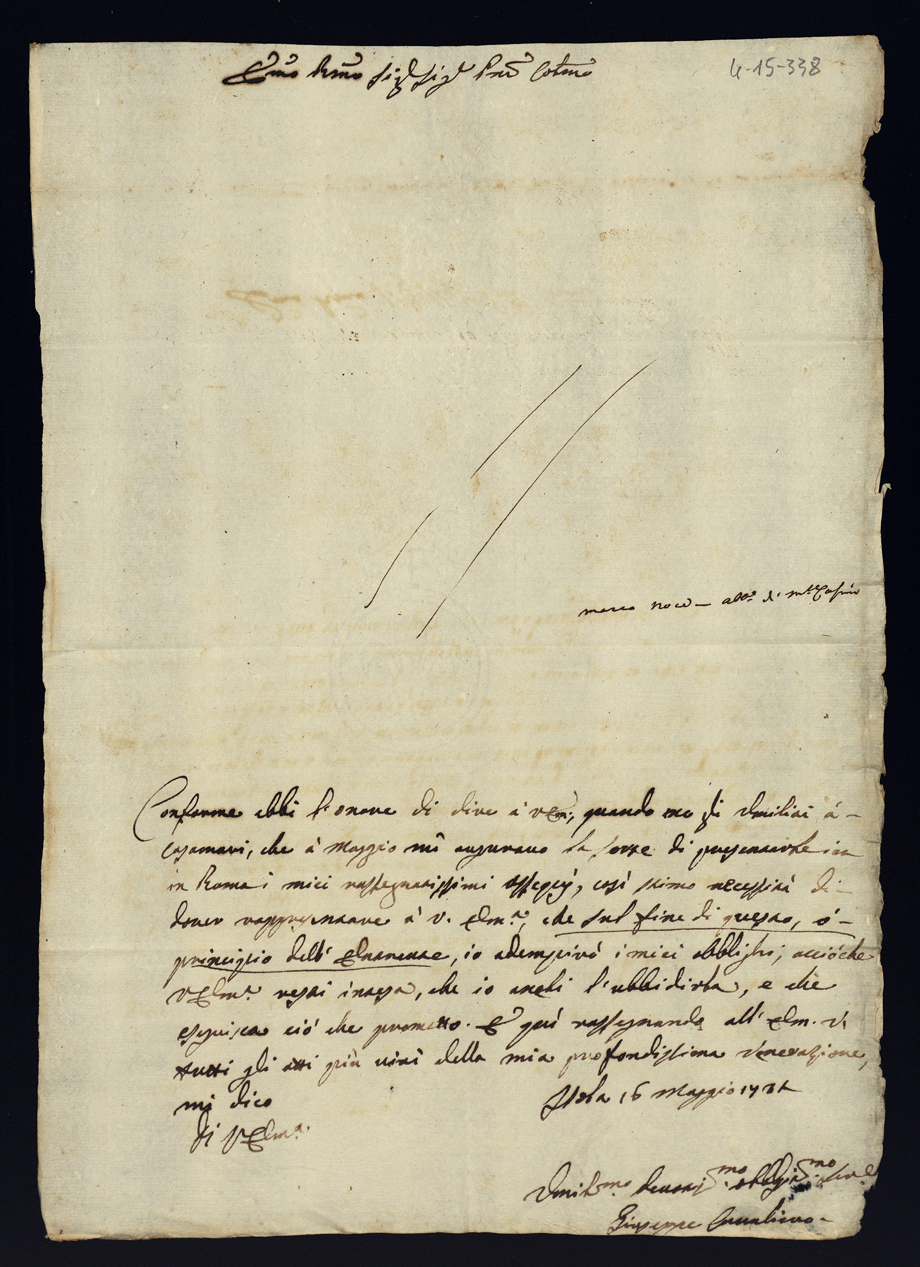 Emo Rmo Sig.r Sig.r Pne Colmo
4-15-338
marco
Conforme ebbi l'onore di dire à V.Em:, quando me gli umiliai à
Casamari, che à Maggio mi auguravo la sorte di presentarle in
in Roma i miei rassegnatissimi ossequj, così stimo necessità di
dover rappresentare à V. Em.a, che sul fine di questo, ò
principio dell' entrante, io adempirò i miei obblighi; acciòche
V.Em.a resti intesa, che io aneli l'ubbidirla, e che
eseguisca ciò che prometto. E quì rassegnando all' Em. V.
tutti gli atti più vivi della mia profondissima venerazione,
mi dico
Di V.Em.a
Isola 16 Maggio 1731
Umil.mo Devotis.mo Obbligat.mo Ser.e
Giuseppe